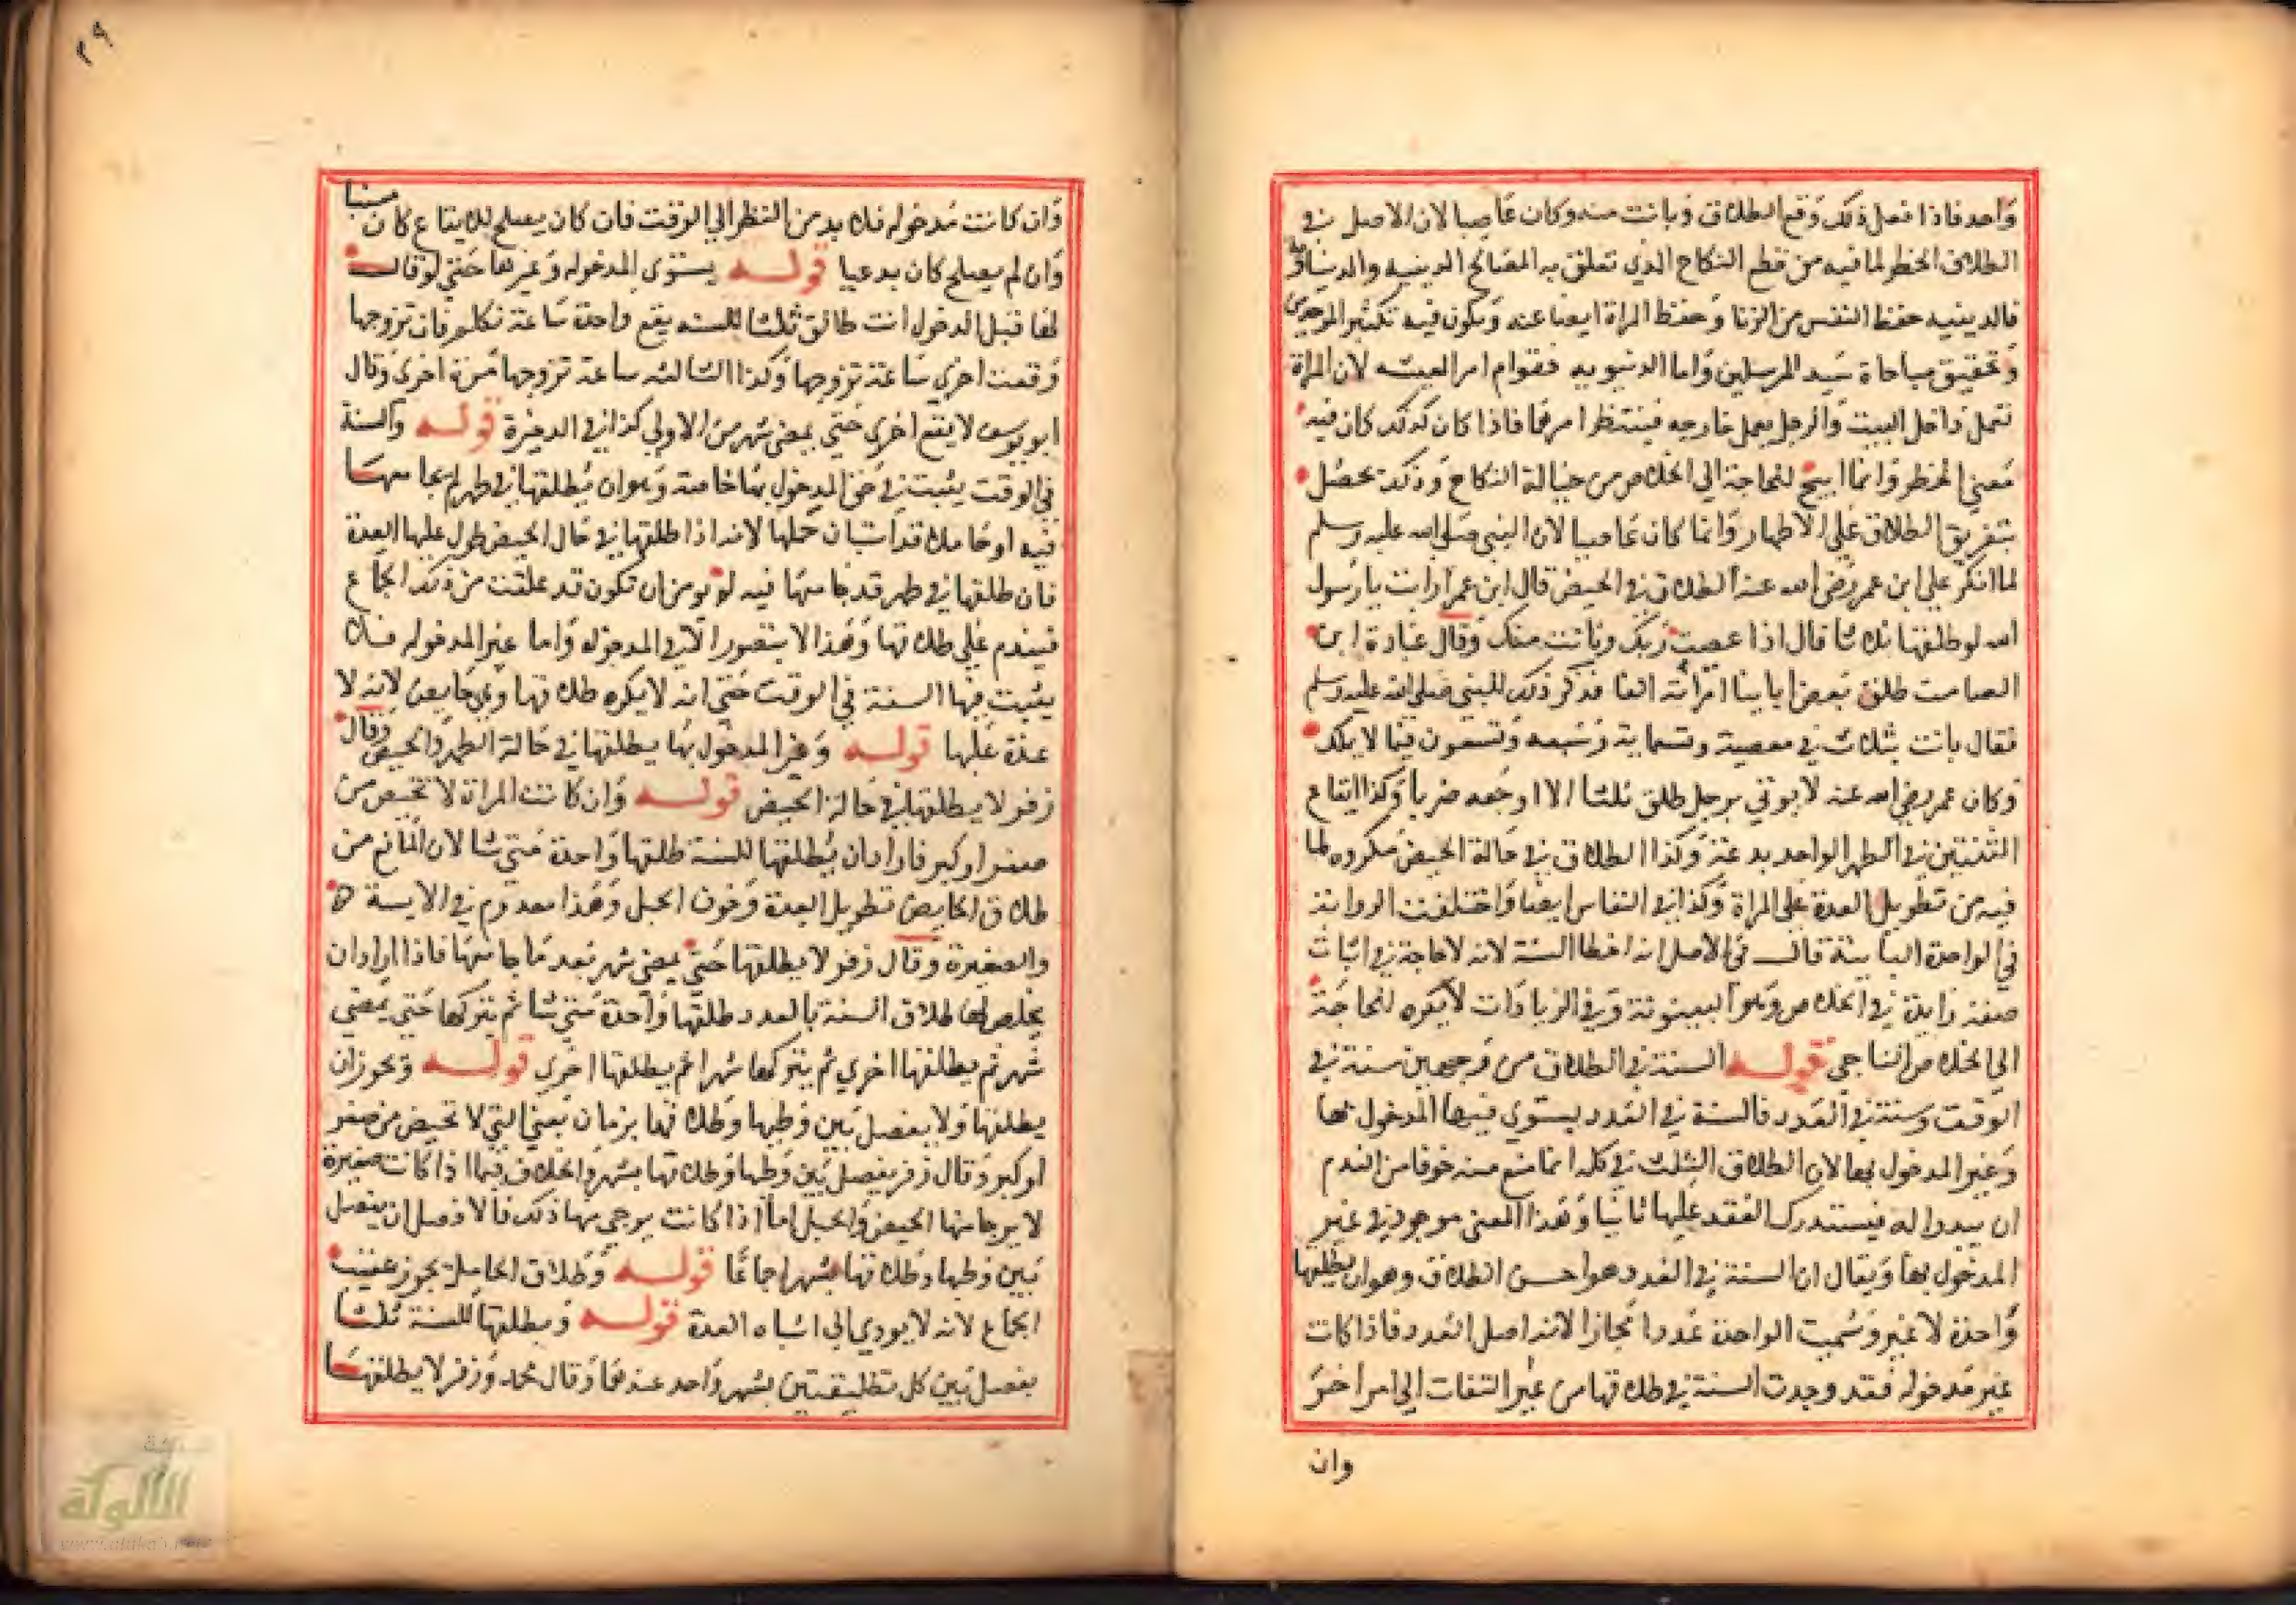 واحد فاذا فعل ذلك وقع الطلاق وبانت منه وكان عاصيا لان الاصل في
الطلاق الخطر لما فيه من قطع النكاح الذي تعلق به المصالح الدينيه والدنياويه
فالدينيه حفظ النفس من الزنا وحفظ المراة ايضا عنه ويكون فيه تكثير الموحدين
وتحقيق مباهاة سيد المرسلين واما الدنيويه فقوام امر المعيشه لان المراة
تعمل داخل البيت والرجل يعمل خارجه فينتظم امرهما فاذا كان كذلك كان فيه
معني الخطر وانما ابيح للحاجة الي الخلاص من حبالة النكاح وذلك يحصل
بتفريق الطلاق علي الاطهار وانما كان عاصيا لان النبي صلي الله عليه وسلم
لما انكر علي ابن عمر رضي الله عنه الطلاق في الحيض قال ابن عمر ارايت يا رسول
الله لو طلقتها ثلاثا قال اذا عصيت ربك وبانت منك وقال عبادة ابن
الصامت طلق بعض ابائنا امراته الفا فذكر ذلك للنبي صلي الله عليه وسلم
فقال بانت بثلاث في معصية وتسماية وسبعه وتسعون فيما لا يملك
وكان عمر رضي الله عنه لا يوتي برجل طلق ثلثا الا اوجعه ضربا وكذا ايقاع
الثنتين في الطهر الواحد بدعة وكذا الطلاق في حالة الحيض مكروه لما
فيه من تطويل العدة علي المراة وكذا في النفاس ايضا واختلفت الرواية
في الواحدة الباينة قال في الاصل انه اخطا السنة لانه لا حاجة في اثبات
صفة زايدة في الخلاص وهو البينونة وفي الزيادات لا يكره للحاجة
الي الخلاص الناجي قوله السنة في الطلاق من وجهين سنة في
الوقت وسنة في العدد فالسنة في العدد يستوي فيها المدخول بها
وغير المدخول بها لان الطلاق الثلث في كلمة انما منع منه خوفا من الندم
ان يبدوا له فيستدرك العقد عليها ثانيا وهذا المعني موجود في غير
المدخول بها ويقال ان السنة في العدد هو احسن الطلاق وهو ان يطلقها
واحدة لا غير وسميت الواحدة عددا مجازا لانه اصل العدد فاذا كانت
غير مدخوله فقد وجدت السنة في طلاقها من غير التفات الي امر اخر
وان
٣٩
وان كانت مدخوله فلا بد من النظر الي الوقت فان كان يصلح للايقاع كان سنيا
وان لم يصلح كان بدعيا قوله يستوي المدخوله وغيرها حتي لو قال
لها قبل الدخول انت طالق ثلثا للسنه يقع واحدة ساعة تكلم فان تزوجها
وقعت اخري ساعة تزوجها وكذا الثالثه ساعة تزوجها مرة اخري وقال
ابو يوسف لا يقع اخري حتي يمضي شهر من الاولي كذا في الدخيرة قوله والسنة
في الوقت يثبت في حق المدخول بها خاصة وهو ان يطلقها في طهر لم يجامعها
فيه او حاملا قد استبان حملها لانه اذا طلقها في حال الحيض طول عليها العدة
فان طلقها في طهر قد جامعها فيه لم يومن ان تكون قد علقت من ذلك الجماع
فيندم علي طلاقها وهذا لا يتصور الا في المدخوله واما غير المدخوله فلا
يثبت فيها السنة في الوقت حتي انه لا يكره طلاقها وهي حايض لانه لا
عدة عليها قوله وغير المدخول بها يطلقها في حالة الطهر والحيض وقال
زفر لا يطلقها في حالة الحيض قوله وان كانت المراة لا تحيض من
صغر او كبر فاراد ان يطلقها للسنة طلقها واحدة متي شا لان المانع من
طلاق الحايض تطويل العدة وخوف الحبل وهذا معدوم في الايسة
والصغيرة وقال زفر لا يطلقها حتي يمضي شهر بعد ما جامعها فاذا اراد ان
يخلص لها طلاق السنة بالعدد طلقها واحدة متي شا ثم يتركها حتي يمضي
شهر ثم يطلقها اخري ثم يتركها شهرا ثم يطلقها اخري قوله ويجوز ان
يطلقها ولا يفصل بين وطيها وطلاقها بزمان يعني التي لا تحيض من صغر
او كبر وقال زفر يفصل بين وطيها وطلاقها بشهر والخلاف فيما اذا كانت صغيرة
لا يرجا منها الحيض والحبل اما اذا كانت يرجي منها ذلك فالافضل ان يفصل
بين وطيها وطلاقها بشهر اجماعا قوله وطلاق الحامل يجوز عقيب
الجماع لانه لا يودي الي اشباه العدة قوله ويطلقها للسنة ثلثا
يفصل بين كل تطليقتين بشهر واحد عندهما وقال محمد وزفر لا يطلقها
الألوكة